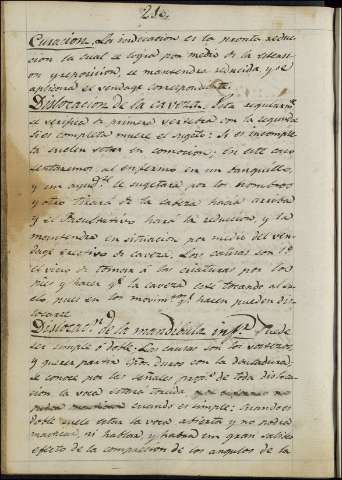 Curacion. La indicacion es la pronta reduc-
cion la cual se logra por medio de la esten-
sion y reposicion, se mantendra reducida, y se
aplicara el vendage correspondte.
Dislocacion de la caveza. Esta regularmte
se verifica de primera vertebra con la segunda
si es completa muere el sugeto: Si es incomple-
ta suelen estar en comocion; En este caso
sentaremos al enfermo en un banquillo,
y un ayudte le sugetara por los hombros
y otro tirará de la cabeza hacia arriba
y el Facultativo hará la reduccion, y la
mantendra en situacion por medio del ven-
dage de caveza; Las causas son
el vicio de tomar á las criaturas por los
pies y hacer qe la caveza esté tocando al su-
elo, pues en los movimtos qe hacen pueden dis-
locarse
Dislocacn de la mandibula infr. Puede
ser simple ó doble: Las causas son los vostezos,
y querer partir duros con la dentadura;
se conoce por las señales propas de toda disloca-
cion la voca estará torcida,
cuando es simple: Cuando es
doble suele estar la voca abierta y no podrá
mascar, ni hablar, y habrá un gran salibeo
efecto de la compresion de los angulos de la